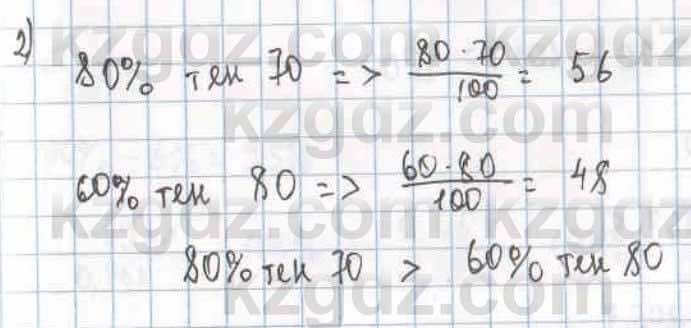 2)
80% тен 70 => 80·70/100 = 56
60% тен 80 => 60·80/100 = 48
80% тен 70 > 60% тен 80
kzgdz.com
kzgdz.com
kzgdz.com
kzgdz.com